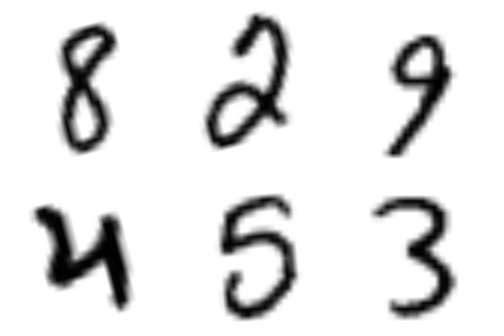 8 2 9
4 5 3